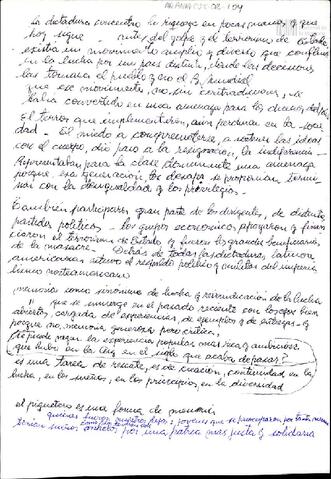 La dictadura concentra la riqueza en pocas manos, y que
hoy sigue - antes del golpe y el terrorismo de Estado
existía un movimiento amplio y diverso que confluía
en la lucha por un país distinto, donde las decisiones
las tomara el pueblo y no el
que ese movimiento, no sin contradicciones, se
había convertido en una amenaza para los
El terror que implementaron, aún perdura en la socie
dad - El miedo a comprometerse, a sostener las ideas
con el cuerpo, dio paso a la resignación, la indiferencia -
Representaban para la clase dominante una amenaza
porque esa generación los desafió se proponían termi
nar con la desigualdad y los privilegios.
También participaron gran parte de los dirigentes, de distintos
partidos políticos - los grupos económicos apoyaron y finan
ciaron el terrorismo de Estado y fueron los grandes beneficiarios
de la masacre - Detrás de todas las dictaduras latino
americanas estuvo el respaldo político y militar del imperia
lismo norteamericano
memoria como sinónimo de lucha y reivindicación de la lucha
" que se sumerge en el pasado reciente con los ojos bien
abiertos, cargada de experiencias, de ejemplos y de entregas - y
porque no, memoria generosa pero crítica,
se puede negar la experiencia popular más rica y ambiciosa
que hubo en la Arg en el siglo que acaba de pasar?
es una tarea de rescate, es de creación, continuidad en la
lucha, en los sueños, en los principios, en la diversidad
el piquetero es una forma de
quienes fueron nuestros desap: jóvenes que se preocuparon por tanta
tenían sueños, anhelos por una patria más justa y solidaria